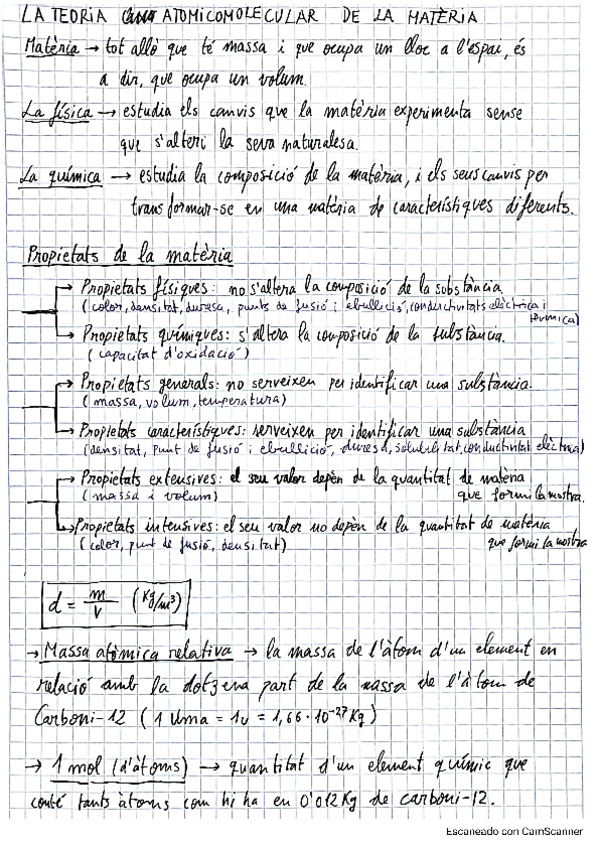 LA TEORIA ATOMICOMOLECULAR DE LA MATÈRIA
Matèria → tot allò que té massa i que ocupa un lloc a l'espai, és
a dir, que ocupa un volum.
La física → estudia els canvis que la matèria experimenta sense
que s'alteri la seva naturalesa.
La química → estudia la composició de la matèria, i els seus canvis per
transformar-se en una matèria de característiques diferents.
Propietats de la matèria
→ Propietats físiques: no s'altera la composició de la substància.
(color, densitat, duresa, punts de fusió i ebullició, conductivitats elèctrica i
tèrmica)
→ Propietats químiques: s'altera la composició de la substància.
(capacitat d'oxidació)
→ Propietats generals: no serveixen per identificar una substància.
(massa, volum, temperatura)
→ Propietats característiques: serveixen per identificar una substància
(densitat, punt de fusió i ebullició, duresa, solubilitat, conductivitat elèctrica)
→ Propietats extensives: el seu valor depèn de la quantitat de matèria
(massa i volum) que formi la mostra.
→ Propietats intensives: el seu valor no depèn de la quantitat de matèria
(color, punt de fusió, densitat) que formi la mostra
d = m/V (Kg/m³)
→ Massa atòmica relativa → la massa de l'àtom d'un element en
relació amb la dotzena part de la massa de l'àtom de
Carboni-12 (1 Uma = 1u = 1,66·10⁻²⁷Kg)
→ 1 mol (d'àtoms) → quantitat d'un element químic que
conté tants àtoms com hi ha en 0'012Kg de carboni-12.
Escaneado con CamScanner